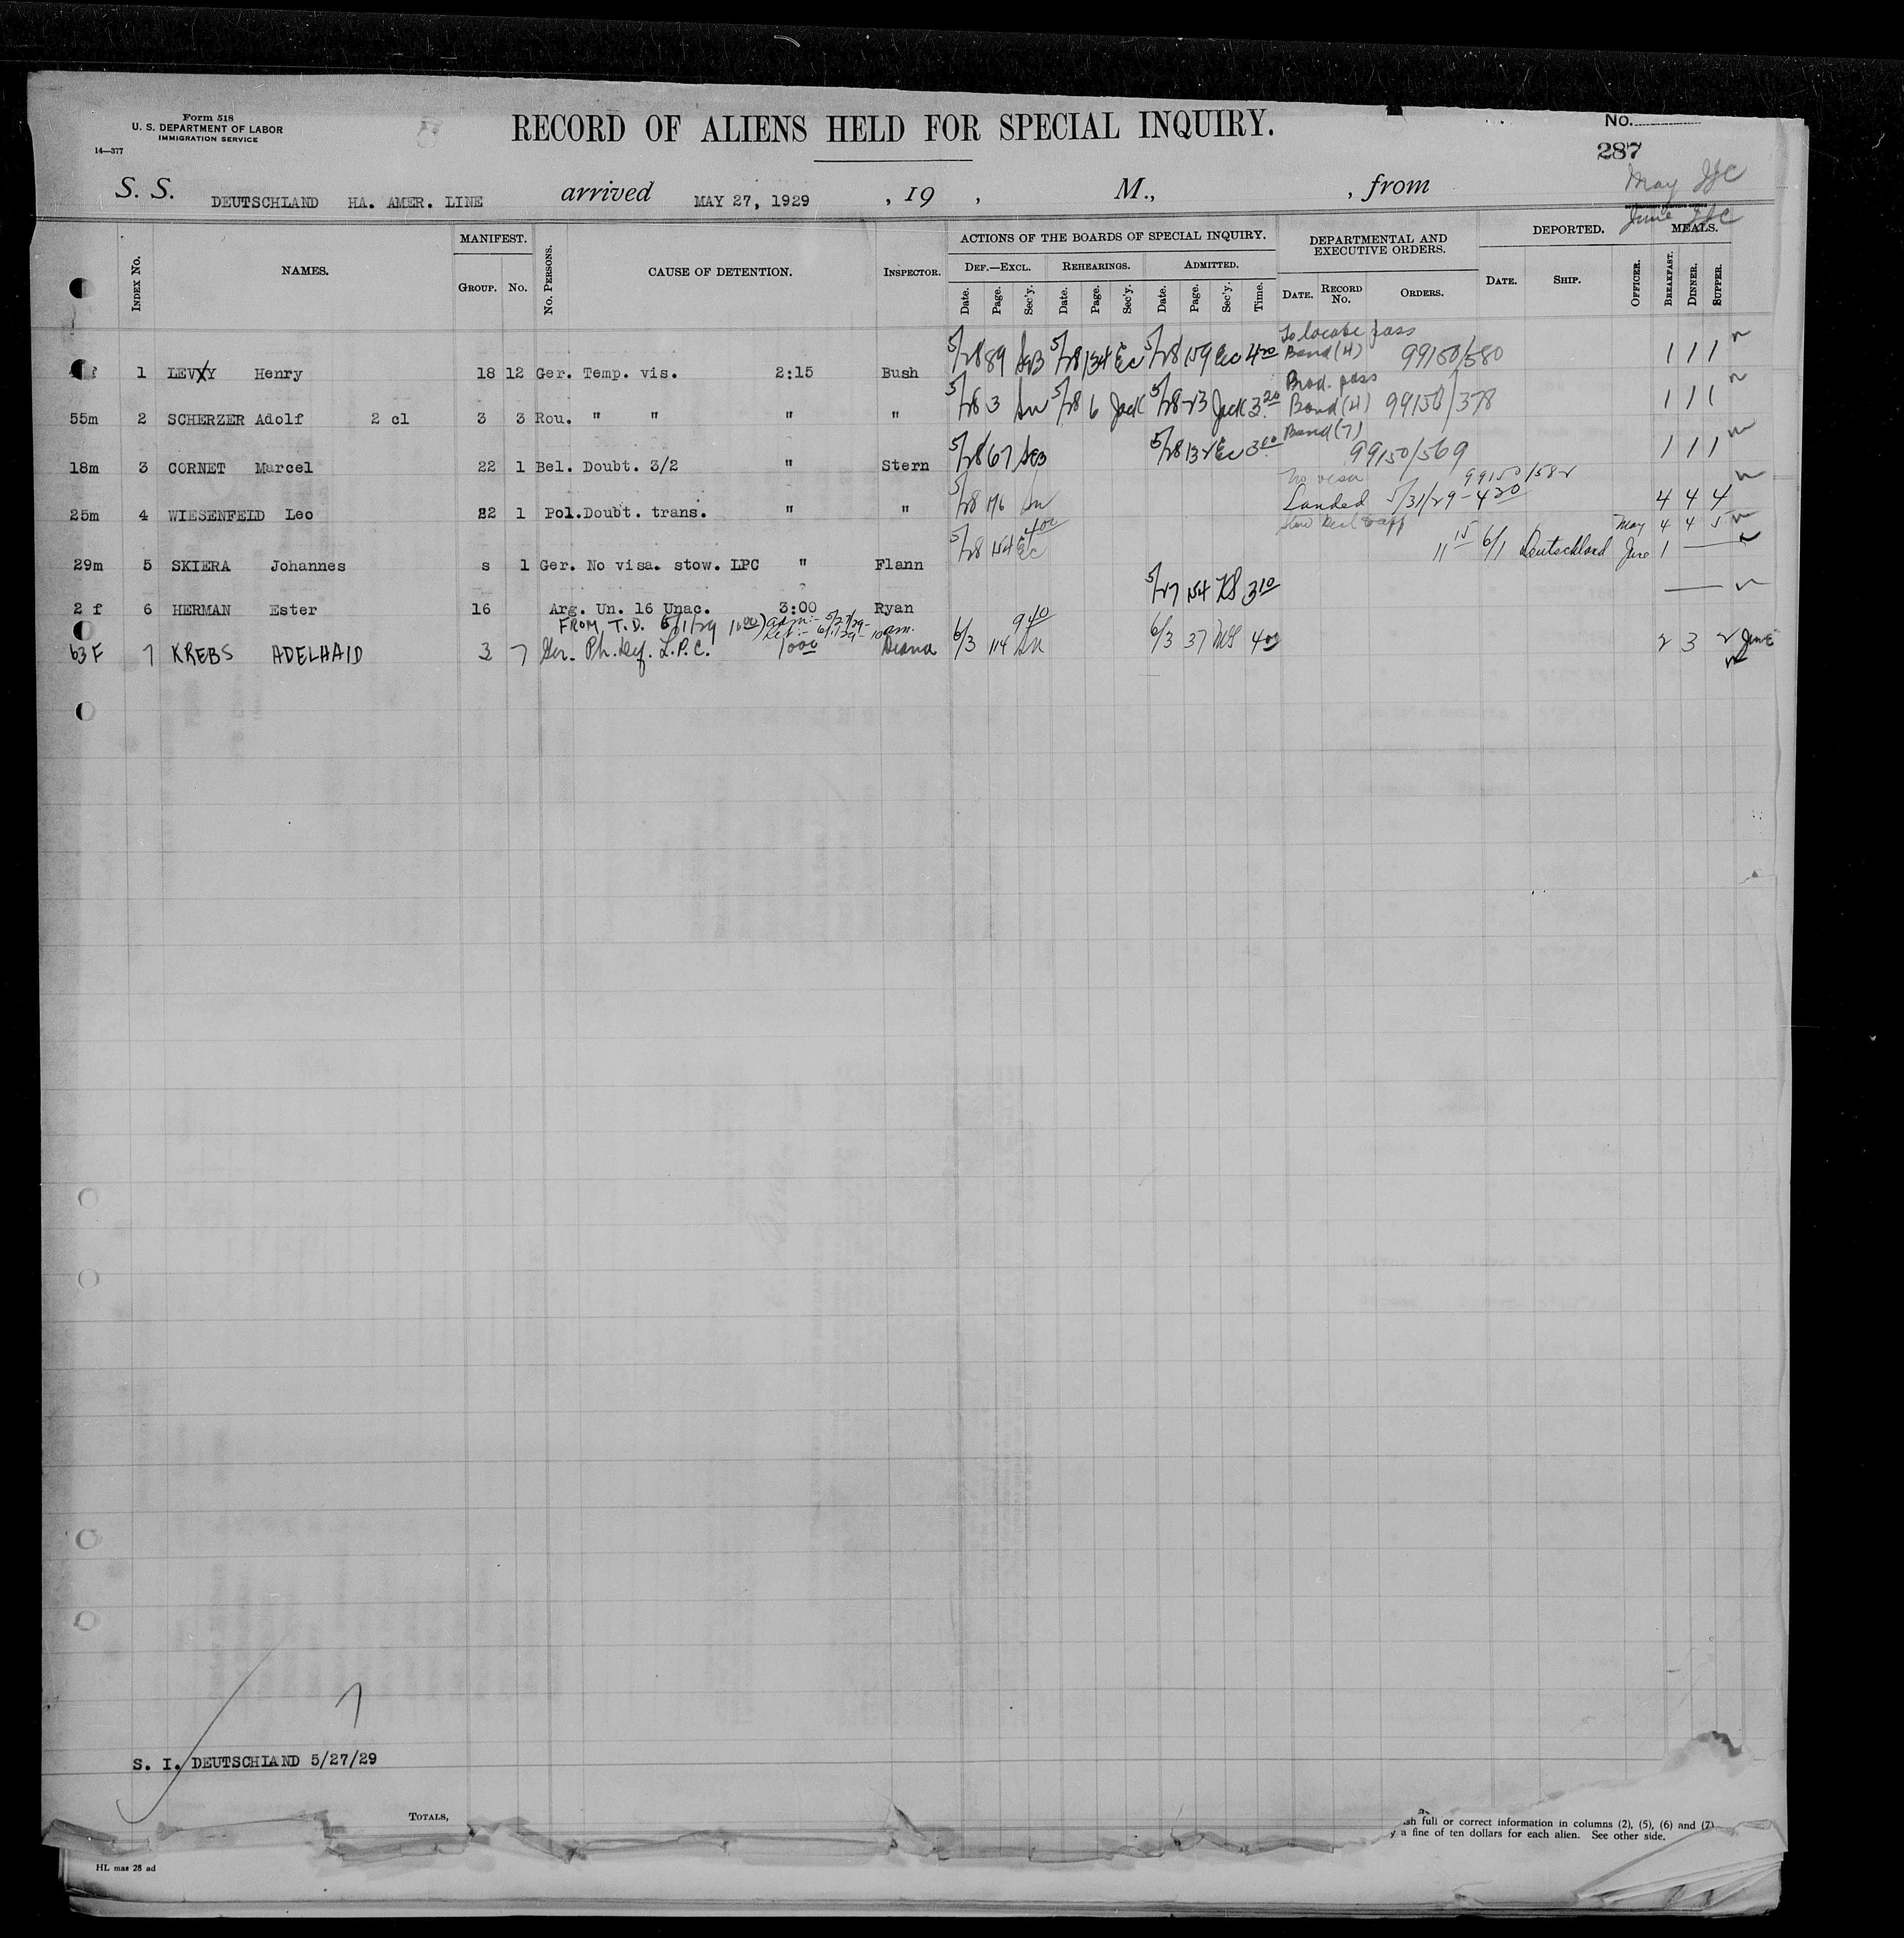 Form 518
U. S. DEPARTMENT OF LABOR
IMMIGRATION SERVICE
14—377
RECORD OF ALIENS HELD FOR SPECIAL INQUIRY.
No.
287
May
June
S. S. DEUTSCHLAND HA. AMER. LINE arrived MAY 27, 1929 , 19 , M., , from
INDEX No. NAMES. MANIFEST. GROUP. No. No. PERSONS. CAUSE OF DETENTION. INSPECTOR. ACTIONS OF THE BOARDS OF SPECIAL INQUIRY. DEF.—EXCL. Date. Page. Sec'y. REHEARINGS. Date. Page. Sec'y. ADMITTED. Date. Page. Sec'y. Time. DEPARTMENTAL AND EXECUTIVE ORDERS. DATE. RECORD No. ORDERS. DEPORTED. DATE. SHIP. OFFICER. MEALS. BREAKFAST. DINNER. SUPPER.
To locate pass
1 LEVY Henry 18 12 Ger. Temp. vis. 2:15 Bush 5/28 89 SEB 5/28 134 EC 5/28 159 EC 4 20 Bond (4) 99150/580 1 1 1
Prod. pass
55m 2 SCHERZER Adolf 2 cl 3 3 Rou. " " " " 5/28 3 5/28 6 Jack 5/28 23 Jack 3 20 Bond (4) 99150/378 1 1 1
Bond (7)
18m 3 CORNET Marcel 22 1 Bel. Doubt. 3/2 " Stern 5/28 67 SEB 5/28 132 EC 3 00 99150/569 1 1 1
No visa 99150/582
25m 4 WIESENFELD Leo 22 1 Pol. Doubt. trans. " " 5/28 176 Landed 5/31/29 - 4 20 4 4 4
May 4 4 5
29m 5 SKIERA Johannes s 1 Ger. No visa. stow. LPC " Flann 5/28 154 EC 4 00 11 15 6/1 Deutschland June 1
2 f 6 HERMAN Ester 16 Arg. Un. 16 Unac. 3:00 Ryan 5/27 154 3 10
FROM T.D. 6/1/29 10 00 adm:- 5/27/29- Ret:- 6/1/29- 10 am.
63 F 7 KREBS ADELHAID 3 7 Ger. Ph. Def. L.P.C. 10 00 Diana 6/3 114 9 40 6/3 37 4 00 2 3 2 June
7
S. I. DEUTSCHLAND 5/27/29
TOTALS,
ish full or correct information in columns (2), (5), (6) and (7)
y a fine of ten dollars for each alien. See other side.
HL mas 28 ad